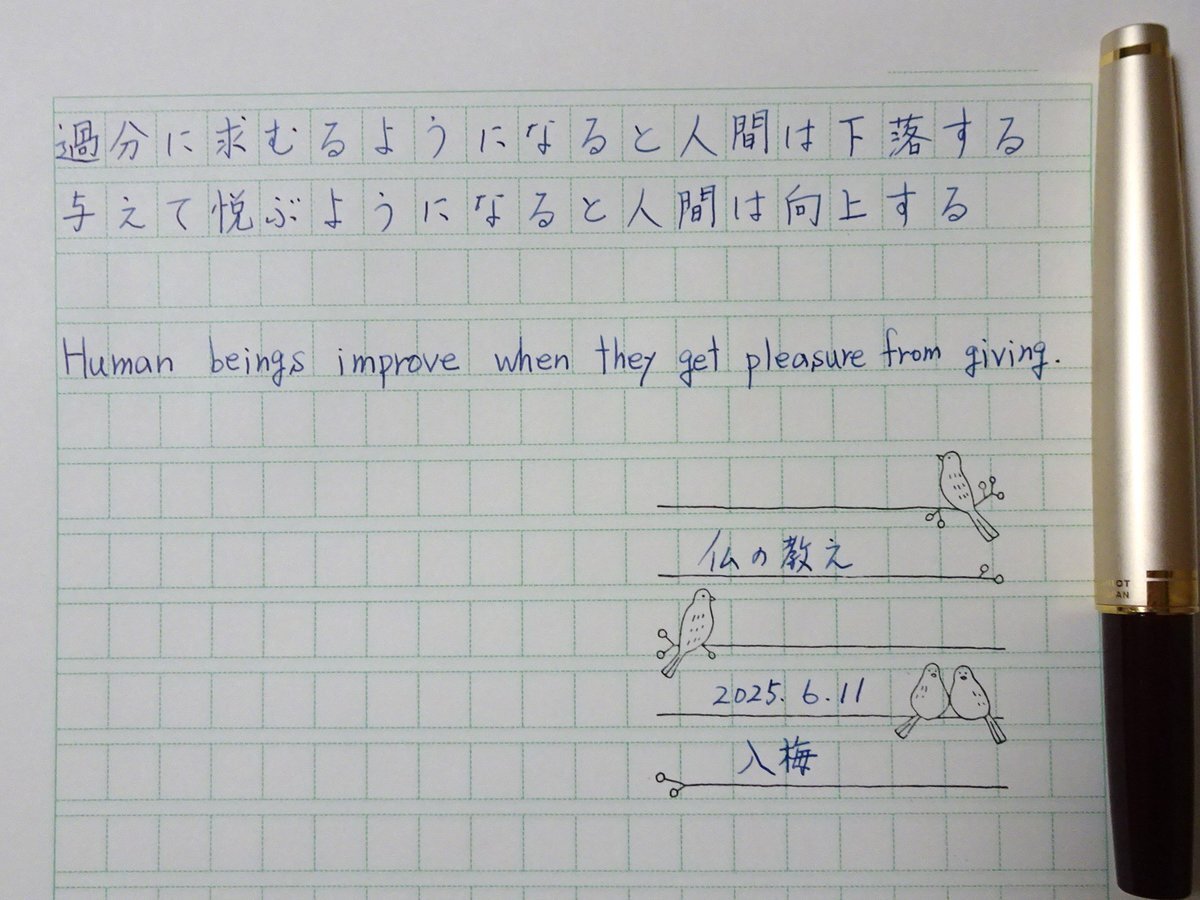 過分に求むるようになると人間は下落する
与えて悦ぶようになると人間は向上する
Human beings improve when they get pleasure from giving.
仏の教え
2025.6.11
入梅